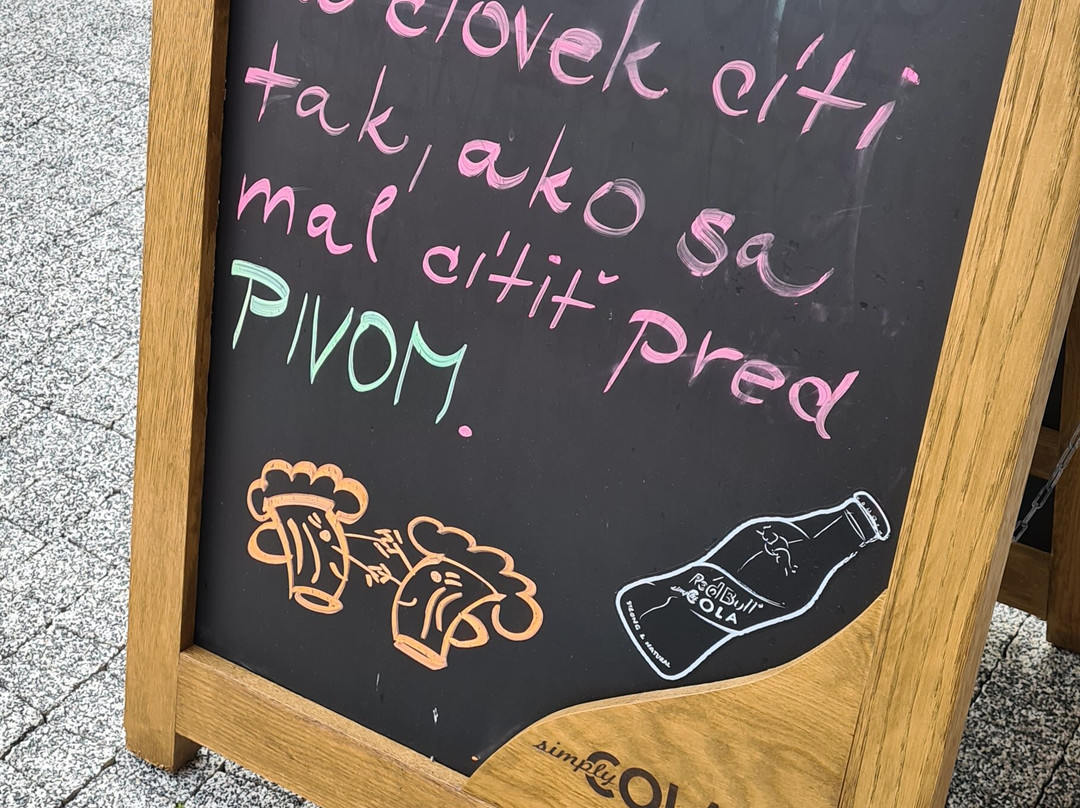 človek cíti
tak, ako sa
mal cítiť pred
PIVOM.
Red Bull
simply
COLA
STRONG & NATURAL
simply